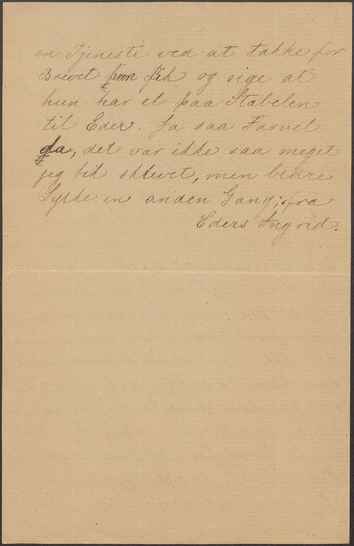 en Tjeneste ved at takke for
Brevet hun fik og sige at
hun har et paa Stabelen
til Eder. Ja saa Farvel
da, det var ikke saa meget
jeg fik skrevet, men bedre
Lykke en anden Gang; fra
Eders Ingrid.